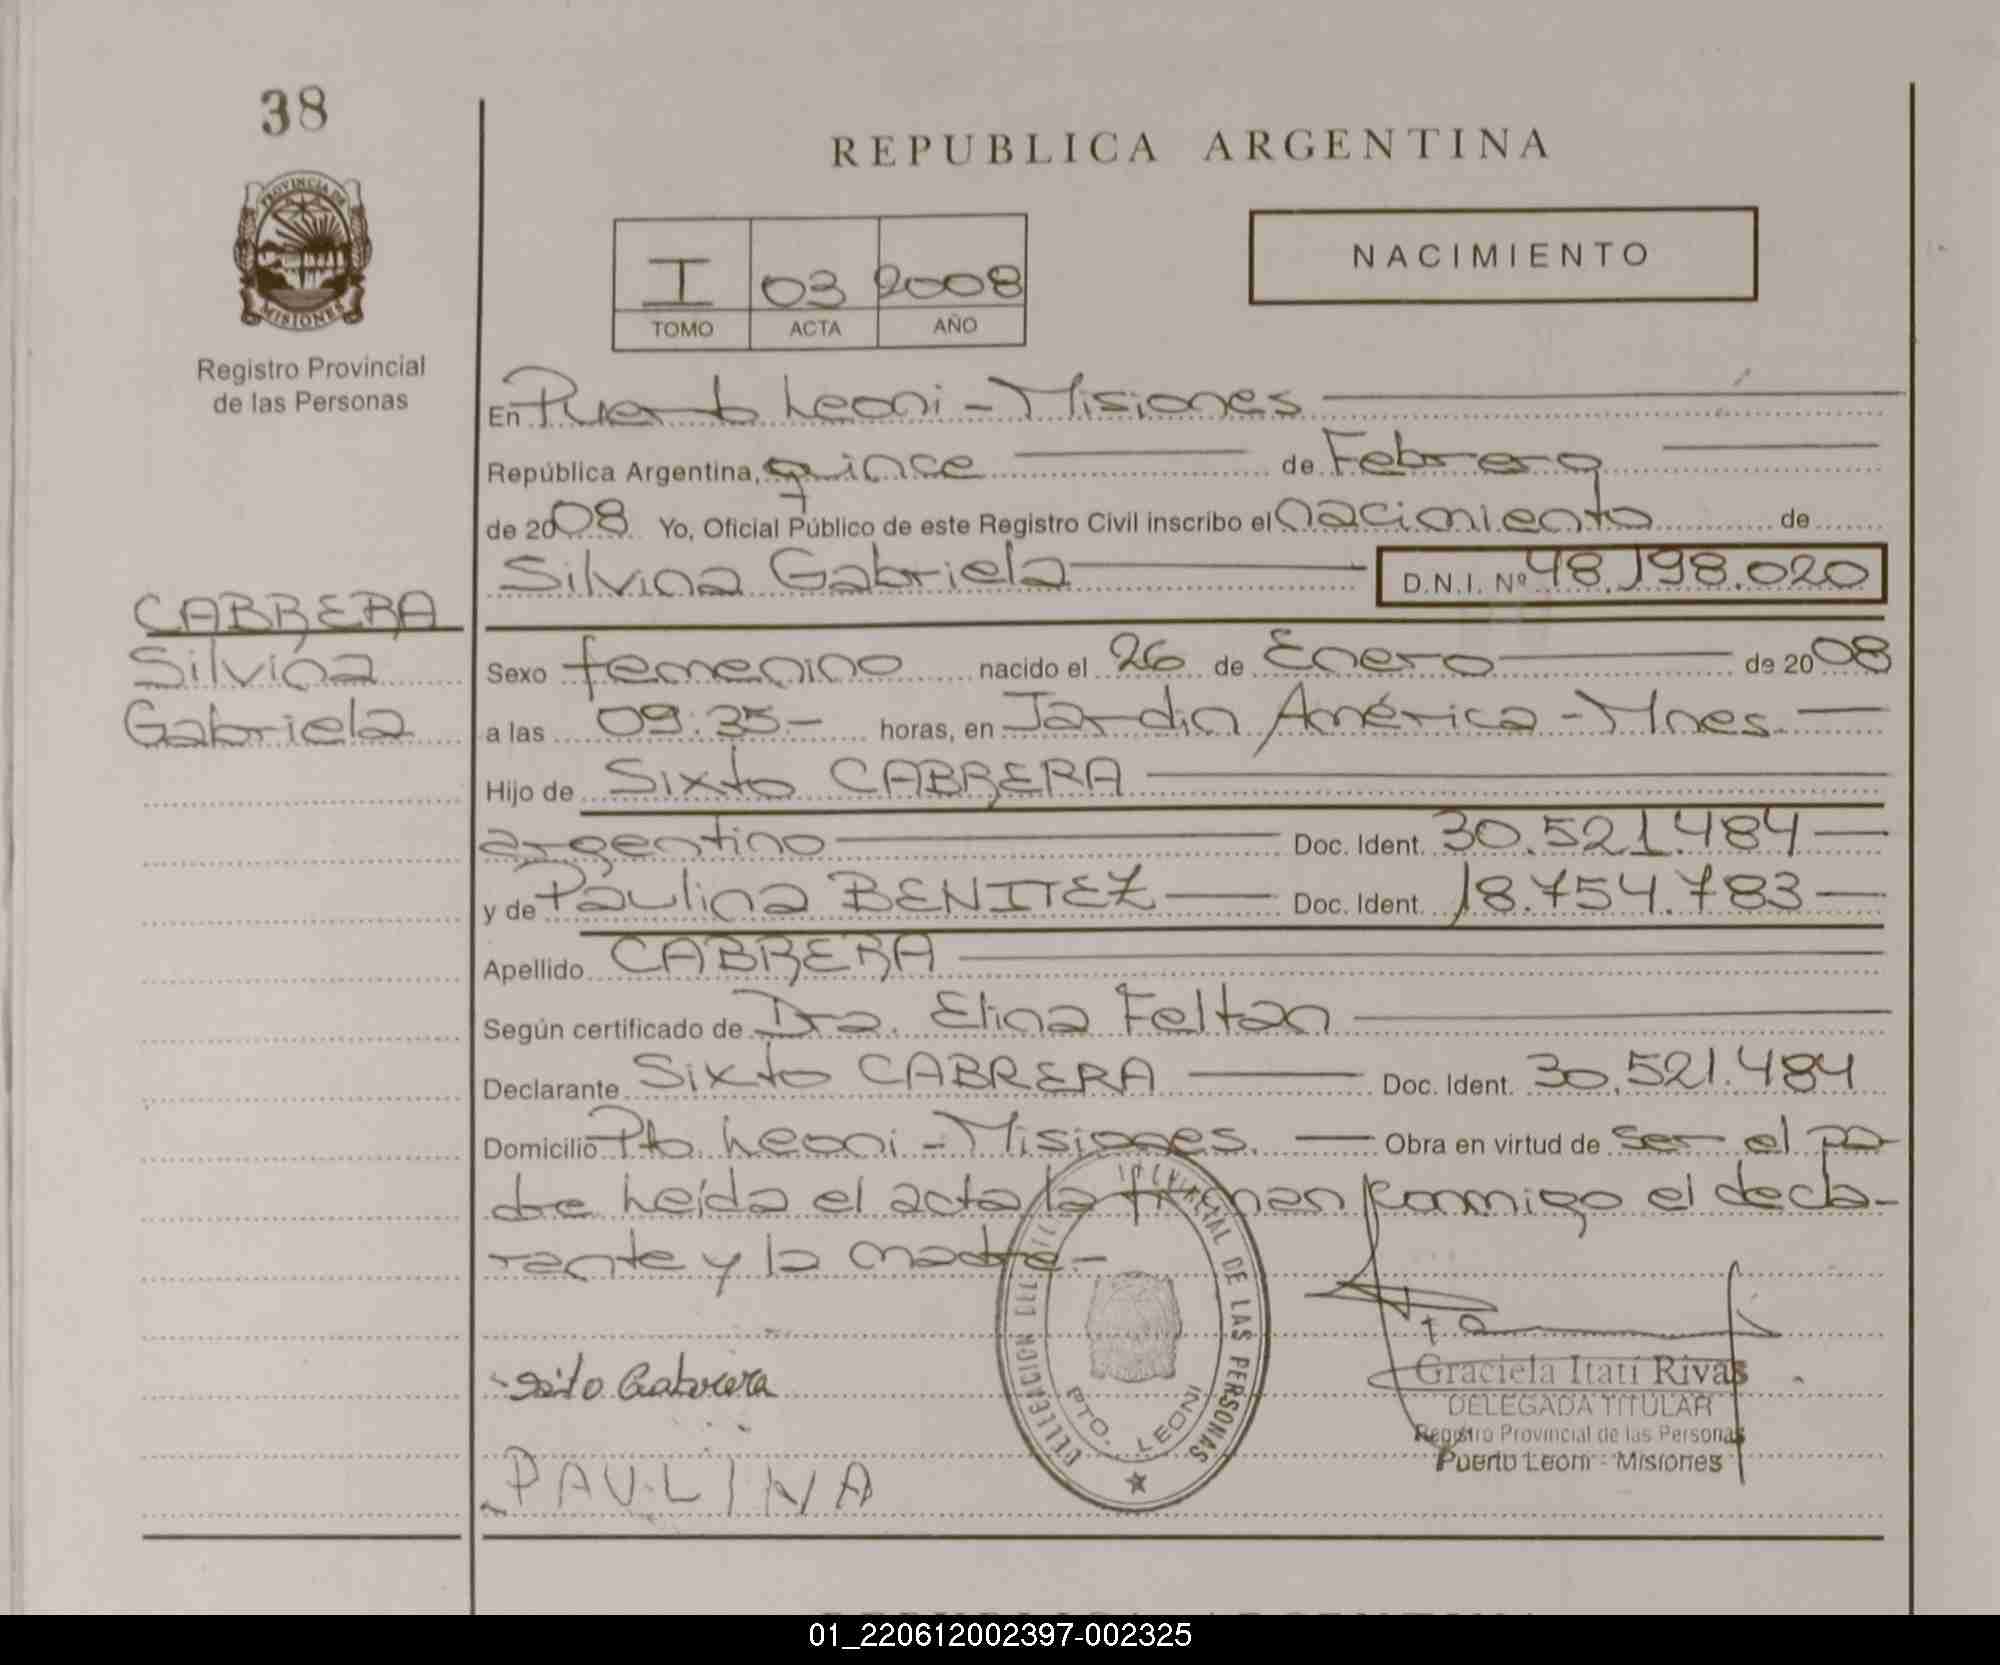 38
REPUBLICA ARGENTINA
PROVINCIA DE
MISIONES
Registro Provincial
de las Personas
I 03 2008
TOMO ACTA AÑO
NACIMIENTO
En Puerto Leoni - Misiones
República Argentina, quince de Febrero
de 2008 Yo, Oficial Público de este Registro Civil inscribo el nacimiento de
Silvina Gabriela D.N.I. Nº 48.198.020
CABRERA
Silvina
Gabriela
Sexo femenino nacido el 26 de Enero de 2008
a las 09:35- horas, en Jardin América - Mnes.
Hijo de Sixto CABRERA
argentino Doc. Ident. 30.521.484
y de Paulina BENITEZ Doc. Ident. 18.754.783
Apellido CABRERA
Según certificado de Dra. Elina Feltan
Declarante Sixto CABRERA Doc. Ident. 30.521.484
Domicilio Pto. Leoni - Misiones. Obra en virtud de ser el pa-
dre Leída el acta la firman conmigo el decla-
rante y la madre-
PROVINCIAL DE LAS PERSONAS
PTO. LEONI
Sixto Cabrera
PAULINA
Graciela Itatí Rivas
DELEGADA TITULAR
Registro Provincial de las Personas
Puerto Leoni - Misiones
01_220612002397-002325